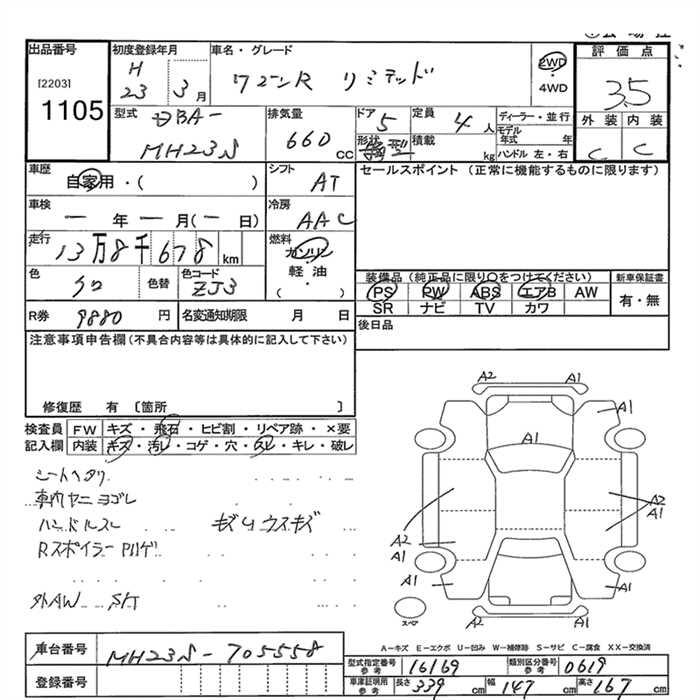 出品番号
[2203]
1105
初度登録年月
H
23 3月
車名・グレード
ワゴンR リミテッド
2WD
・
4WD
評価点
3.5
外装 内装
C C
型式
DBA-
MH23S
排気量
660
CC
ドア
5
定員
4人
形状
積載
kg
ディーラー・並行
モデル
年式 年
ハンドル 左・右
車歴
自家用・( )
シフト
AT
セールスポイント (正常に機能するものに限ります)
車検
一年一月(一日)
冷房
AAC
走行
13万8千678km
燃料
ガソリン
・
軽油
( ・ )
色
クロ
色替
色コード
ZJ3
R券 9880 円
名変通知期限 月 日
装備品 (純正品に限り○をつけてください)
PS PW ABS エアB AW
SR ナビ TV カワ
新車保証書
有・無
後日品
注意事項申告欄(不具合内容等は具体的に記入して下さい)
修復歴 有 〔箇所 〕
検査員
記入欄
FW キズ・飛石・ヒビ割・リペア跡・×要
内装 キズ・汚レ・コゲ・穴・スレ・キレ・破レ
シートヘタリ
車内ヤニヨゴレ
ハンドルスレ キズ、ウスキズ
Rスポイラーハゲ
外AW S/T
A2 A1
A1
A1
A2
A1
A2
A1
A1
A1
A2 A1
スペア
A-キズ E-エクボ U-凹み W-補修跡 S-サビ C-腐食 XX-交換済
車台番号 MH23S-705558
登録番号
型式指定番号
参考
16169
類別区分番号
参考
0619
車庫証明用
参考
長さ 339cm 幅 147cm 高さ 167cm